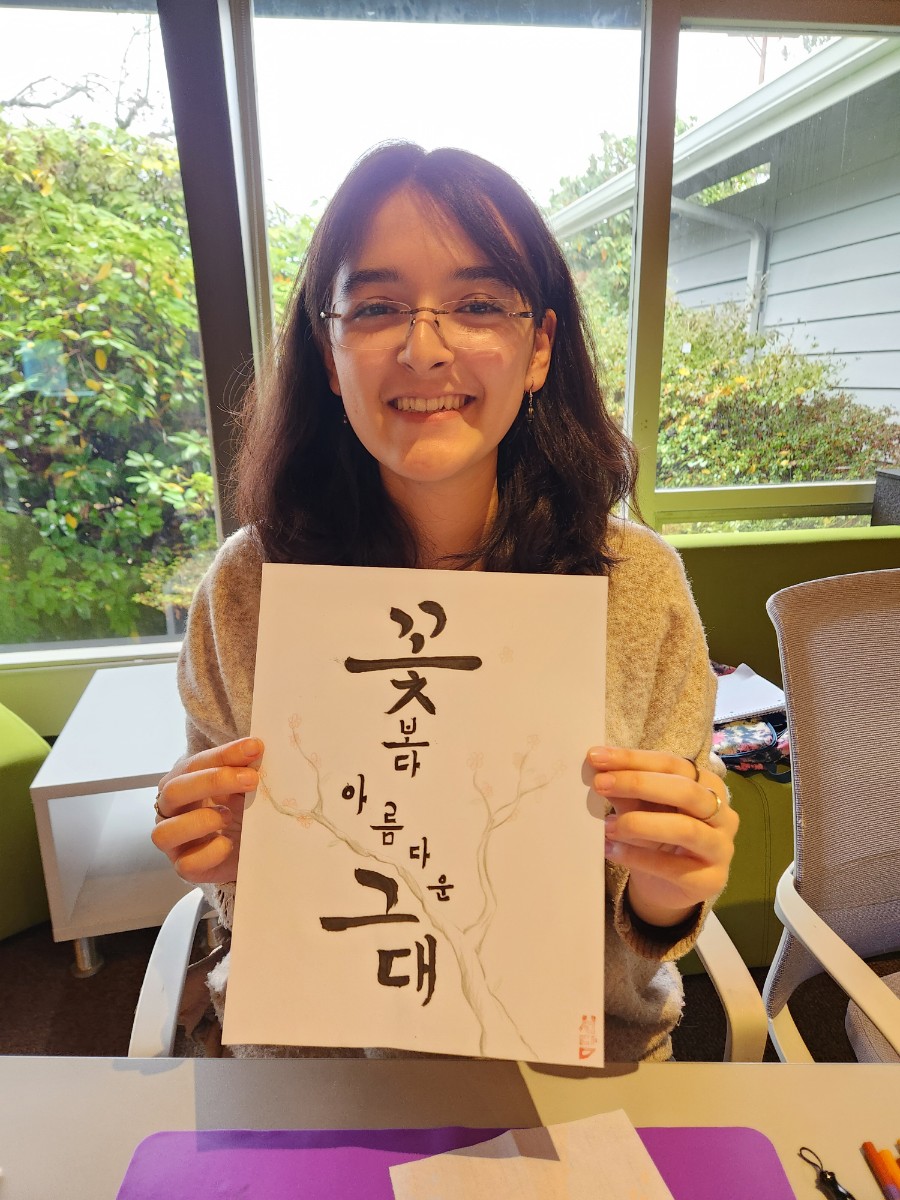 꽃
보다
아름다운
그
대